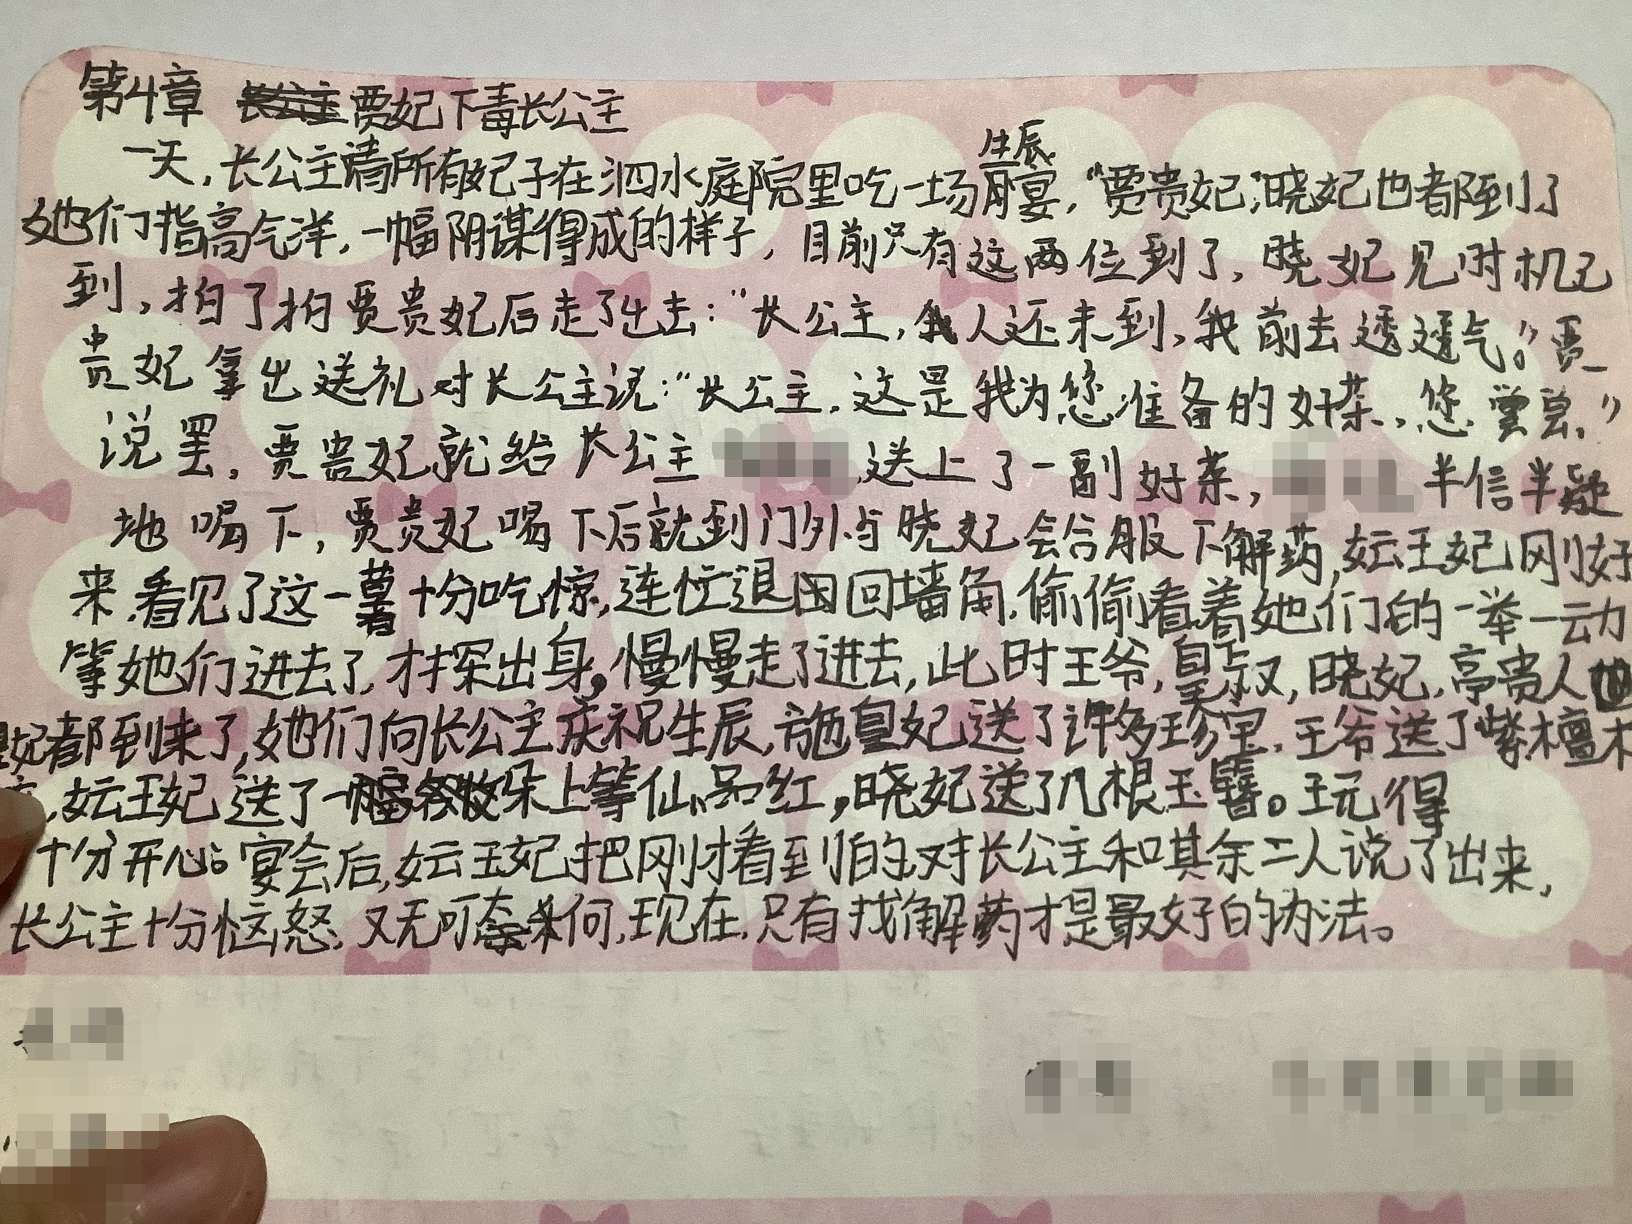 第4章 贾妃下毒长公主
一天,长公主请所有妃子在泗水庭院里吃一场生辰宴,“贾贵妃,”晓妃也都到了
她们指高气洋,一幅阴谋得成的样子,目前只有这两位到了,晓妃见时机已
到,拍了拍贾贵妃后走了出去:“长公主,人还未到,我前去透透气。”贾
贵妃拿出送礼对长公主说:“长公主,这是我为您准备的好茶,您尝尝,”
说罢,贾贵妃就给长公主 送上了一副好茶, 半信半疑
地喝下,贾贵妃喝下后就到门外与晓妃会合服下解药,妘王妃刚好
来,看见了这一幕十分吃惊,连忙退回墙角,偷偷看着她们的一举一动
等她们进去了,才探出身,慢慢走了进去,此时王爷,皇叔,晓妃,高贵人
妃都到来了,她们向长公主庆祝生辰,施皇妃送了许多珍宝,王爷送了紫檀木
,妘王妃送了一朵上等仙品红,晓妃送了几根玉簪。玩得
十分开心。宴会后,妘王妃把刚才看到的对长公主和其余二人说了出来,
长公主十分恼怒,又无可奈何,现在,只有找解药才是最好的办法。